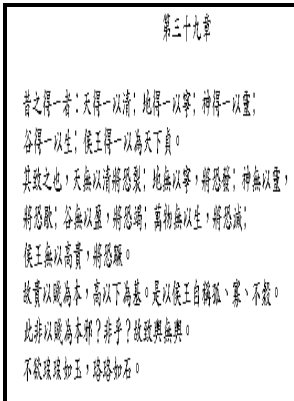 第三十九章
昔之得一者：天得一以清；地得一以寧；神得一以靈；
谷得一以生；侯王得一以為天下貞。
其致之也，天無以清將恐裂；地無以寧，將恐發；神無以靈，
將恐歇；谷無以盈，將恐竭；萬物無以生，將恐滅；
侯王無以高貴，將恐蹶。
故貴以賤為本，高以下為基。是以侯王自稱孤、寡、不穀。
此非以賤為本邪？非乎？故致輿無輿。
不欲琭琭如玉，珞珞如石。